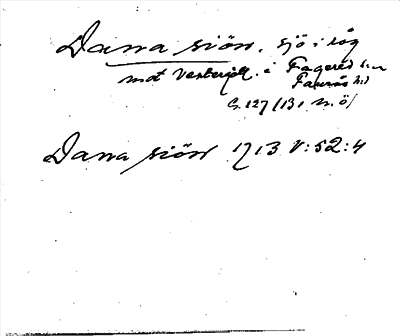 Danna siön, sjö i låg
mot Vesterjöl. i Fagered s:n
Faurås hd
G. 127 (131 n. ö)
Danna siön 1713 V:52:4